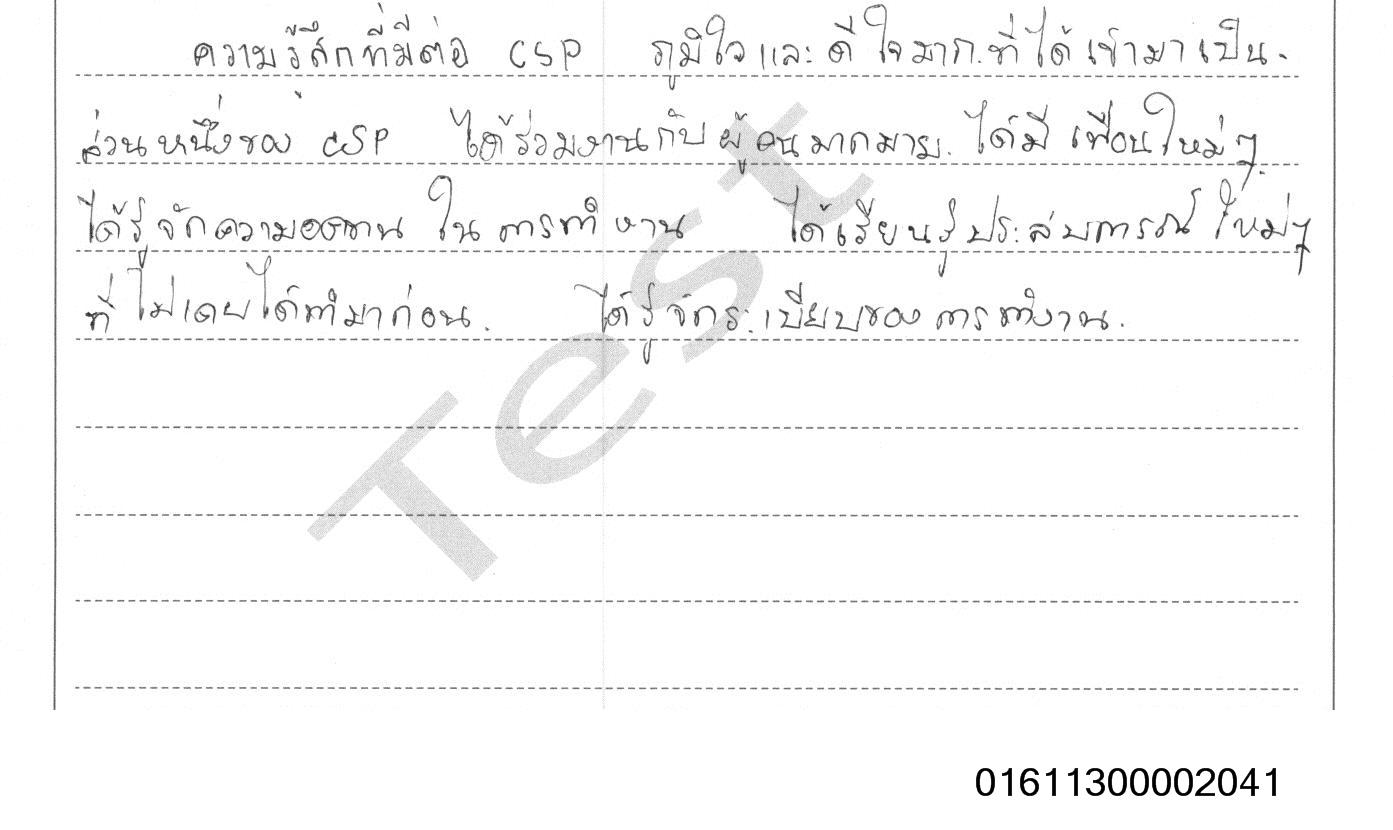 ความรู้สึกที่มีต่อ CSP ภูมิใจและดีใจมาก.ที่ได้เข้ามาเป็น.
ส่วนหนึ่งของ CSP ได้ร่วมงานกับผู้คนมากมาย. ได้มีเพื่อนใหม่ๆ.
ได้รู้จักความอดทน ในการทำงาน ได้เรียนรู้ประสบการณ์ใหม่ๆ
ที่ไม่เคยได้ทำมาก่อน. ได้รู้จักระเบียบของการทำงาน.
Test
01611300002041